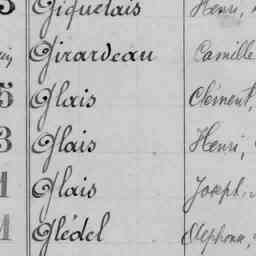 5 Giquelais Henri,
Girardeau Camille
5 Glais Clément,
3 Glais Henri,
1 Glais Joseph
1 Glédel Alphonse,